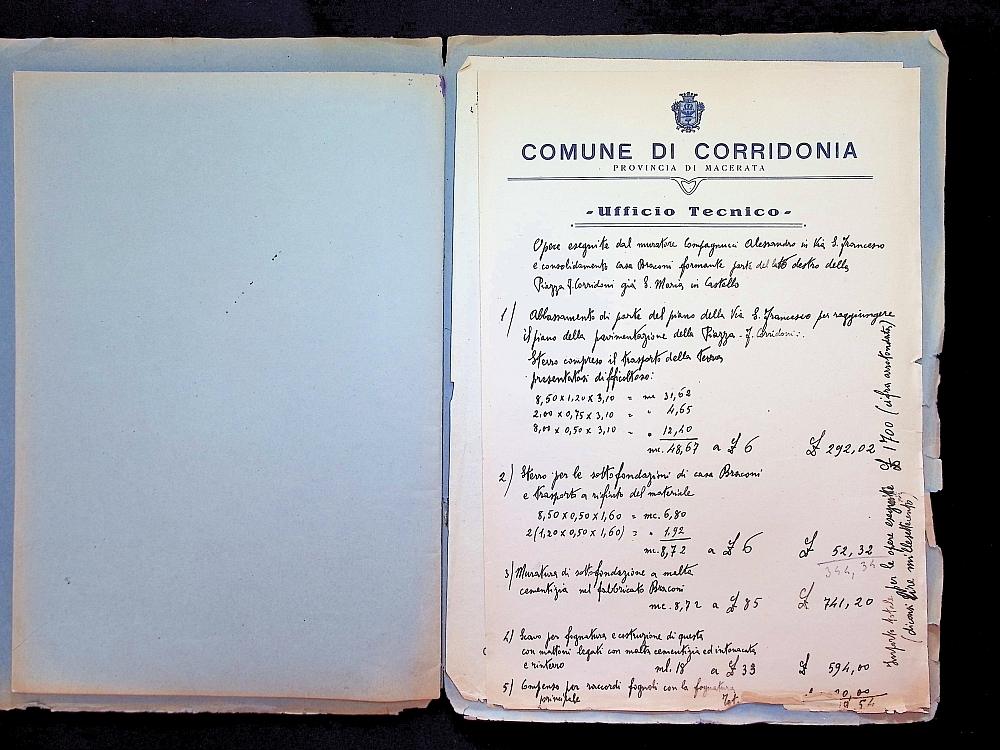 COMUNE DI CORRIDONIA
PROVINCIA DI MACERATA
-Ufficio Tecnico-
Opere eseguite dal muratore Compagnucci Alessandro in Via S. Francesco
e consolidamento casa Braconi formante parte del lato destro della
Piazza F. Corridoni già S. Maria in Castello
1/ Abbassamento di parte del piano della Via S. Francesco per raggiungere
il piano della pavimentazione della Piazza F. Corridoni:
Sterro compreso il trasporto della terra
presentatosi difficoltoso:
8,50 x 1,20 x 3,10 = mc 31,62
2,00 x 0,75 x 3,10 = " 4,65
8,00 x 0,50 x 3,10 = " 12,40
mc. 48,67 a £ 6 £ 292,02
2/ Sterro per le sottofondazioni di casa Braconi
e trasporto a rifiuto del materiale
8,50 x 0,50 x 1,60 = mc. 6,80
2 (1,20 x 0,50 x 1,60) = " 1,92
mc. 8,72 a £ 6 £ 52,32
344,34
3/ Muratura di sottofondazione a malta
cementizia nel fabbricato Braconi
mc. 8,72 a £ 85 £ 741,20
4/ Scavo per fognatura e costruzione di questa
con mattoni legati con malta cementizia ed intonacata
e rinterro ml. 18 a £ 33 £ 594,00
5/ Compenso per raccordi fognoli con la fognatura
principale Tot.
Importo totale per le opere eseguite £ 1700 (cifra arrotondata)
(dicansi lire millesettecento)